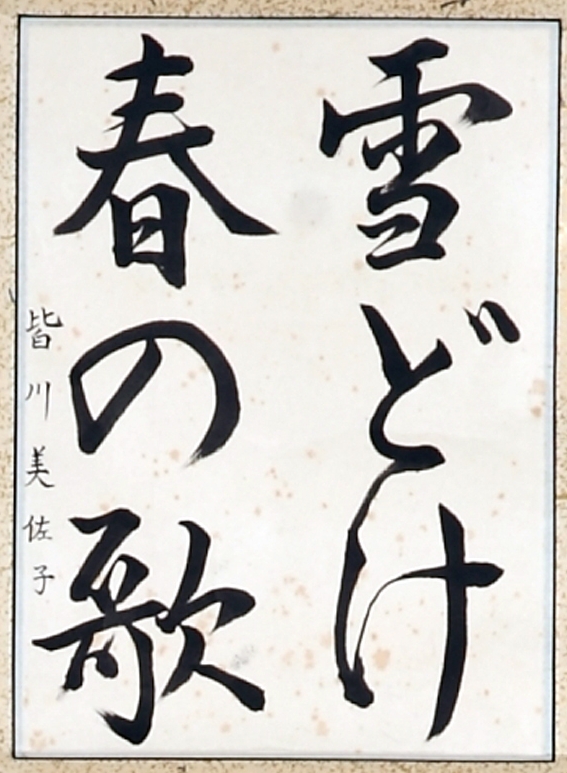 雪どけ
春の歌
皆川美佐子